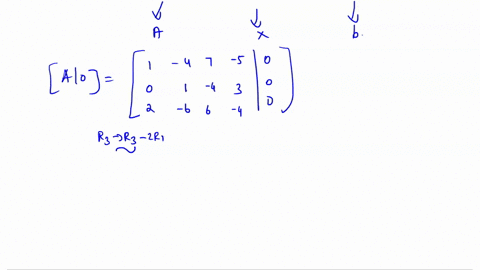 ↓ ↓ ↓
A x b.
[A|0] = [ 1 -4 7 -5 | 0
0 1 -4 3 | 0
2 -6 6 -4 | 0 ]
R3→R3-2R1